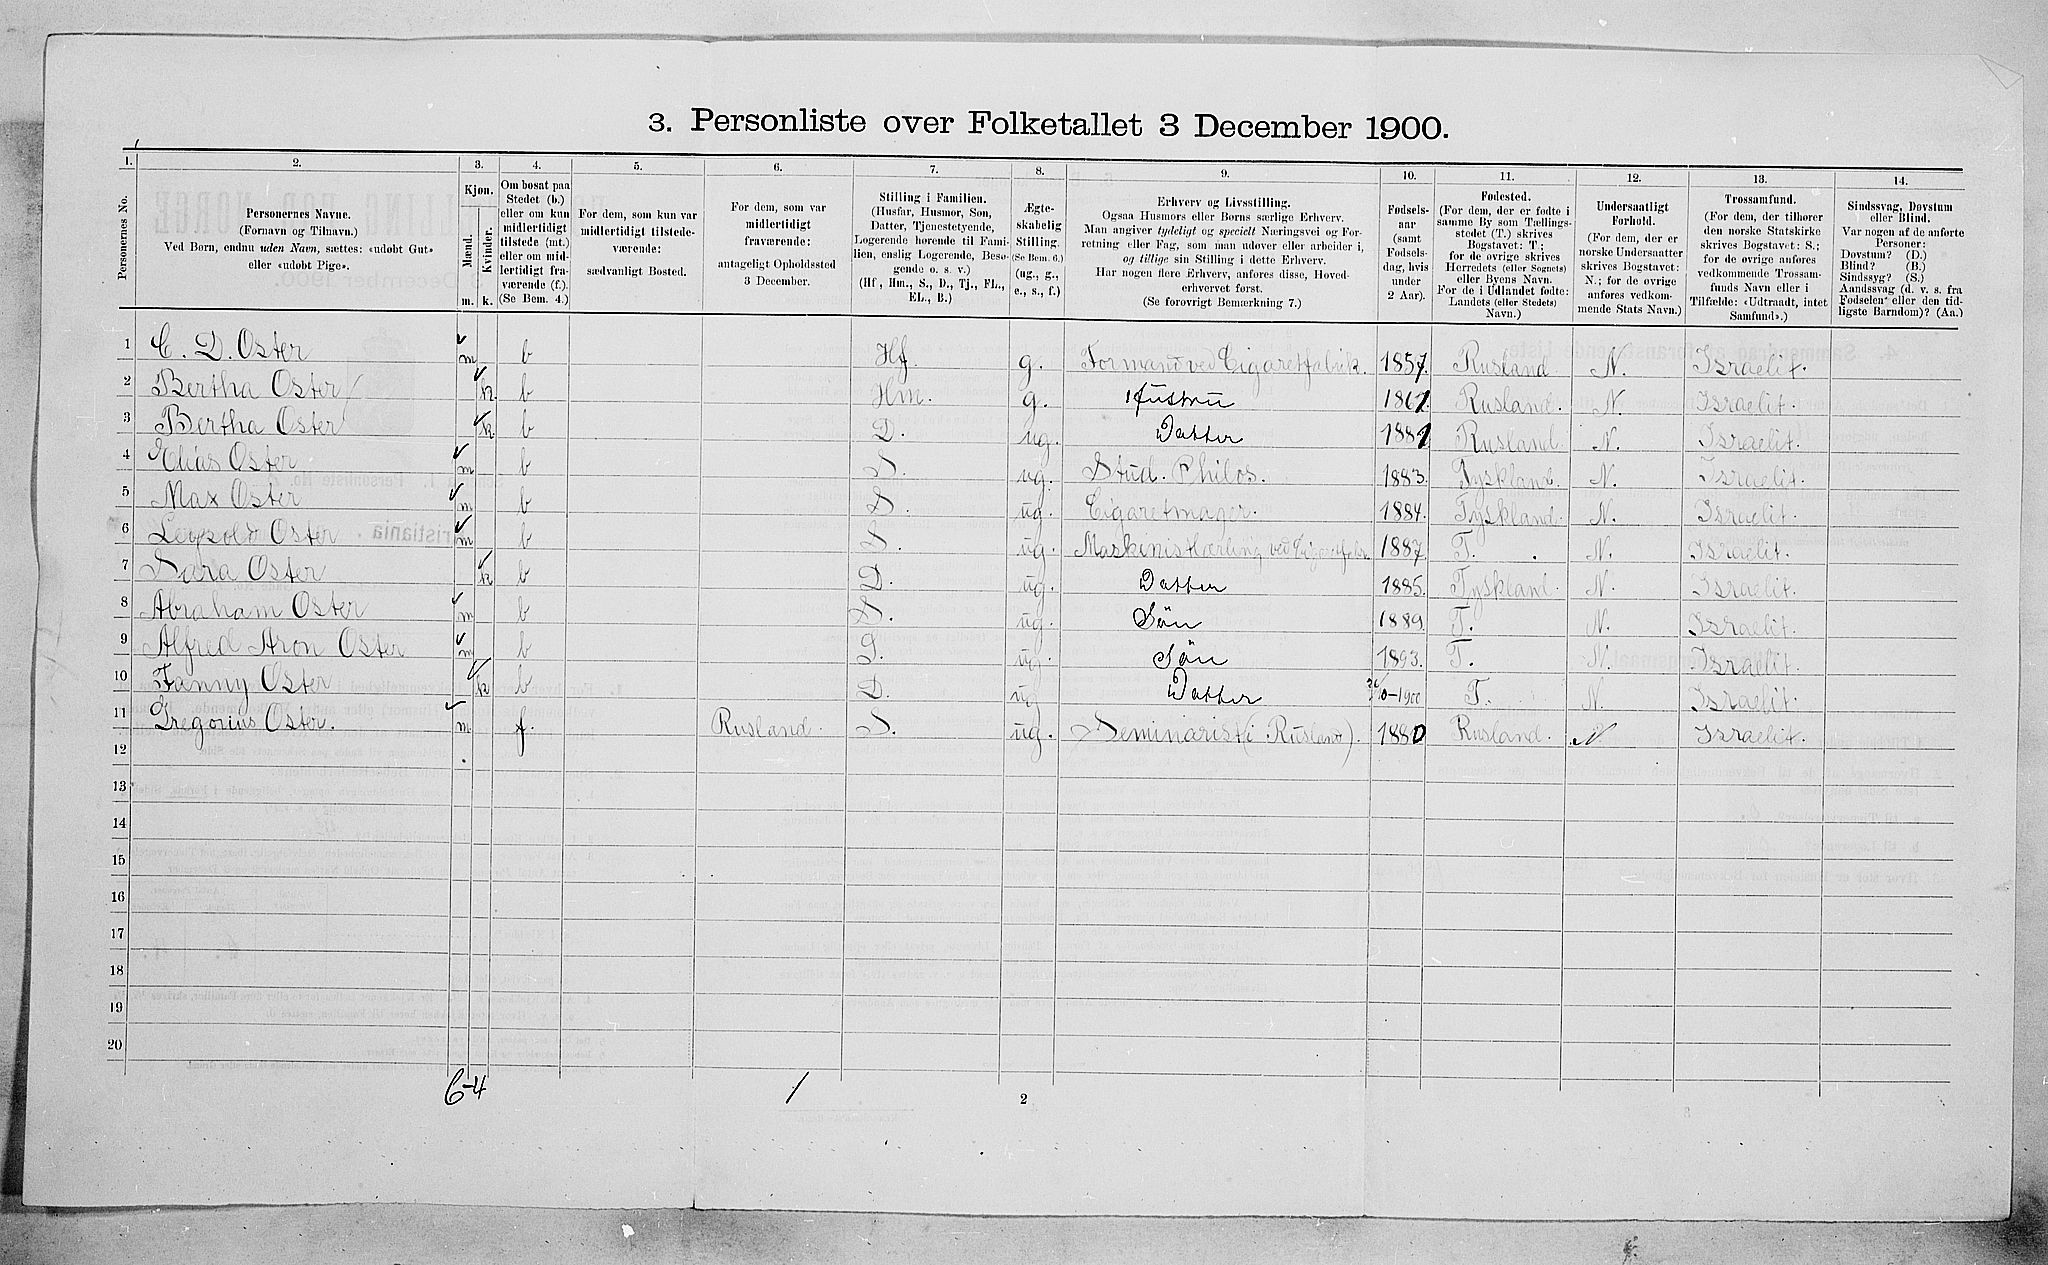 3. Personliste over Folketallet 3 December 1900.
1. 2. 3. 4. 5. 6. 7. 8. 9. 10. 11. 12. 13. 14.
Personernes No.
Personernes Navne.
(Fornavn og Tilnavn.)
Ved Børn, endnu uden Navn, sættes: «udøbt Gut»
eller «udøbt Pige».
Kjøn.
Mænd.
Kvinder.
m. k.
Om bosat paa
Stedet (b.)
eller om kun
midlertidigt
tilstede (mt.)
eller om mid-
lertidigt fra-
værende (f.).
(Se Bem. 4.)
For dem, som kun var
midlertidigt tilstede-
værende:
sædvanligt Bosted.
For dem, som var
midlertidigt
fraværende:
antageligt Opholdssted
3 December.
Stilling i Familien.
(Husfar, Husmor, Søn,
Datter, Tjenestetyende,
Logerende hørende til Fami-
lien, enslig Logerende, Besø-
gende o. s. v.)
(Hf., Hm., S., D., Tj., FL.,
EL., B.)
Ægte-
skabelig
Stilling.
(Se Bem. 6.)
(ug., g.,
e., s., f.)
Erhverv og Livsstilling.
Ogsaa Husmors eller Børns særlige Erhverv.
Man angiver tydeligt og specielt Næringsvei og For-
retning eller Fag, som man udøver eller arbeider i,
og tillige sin Stilling i dette Erhverv.
Har nogen flere Erhverv, anføres disse, Hoved-
erhvervet først.
(Se forøvrigt Bemærkning 7.)
Fødsels-
aar
(samt
Fødsels-
dag, hvis
under
2 Aar).
Fødested.
(For dem, der er fødte i
samme By som Tællings-
stedet (T.) skrives
Bogstavet: T;
for de øvrige skrives
Herredets (eller Sognets)
eller Byens Navn.
For de i Udlandet fødte:
Landets (eller Stedets)
Navn.)
Undersaatligt
Forhold.
(For dem, der er
norske Undersaatter
skrives Bogstavet:
N.; for de øvrige
anføres vedkom-
mende Stats Navn.)
Trossamfund.
(For dem, der tilhører
den norske Statskirke
skrives Bogstavet: S.;
for de øvrige anføres
vedkommende Trossam-
funds Navn eller i
Tilfælde: «Udtraadt, intet
Samfund».)
Sindssvag, Døvstum
eller Blind.
Var nogen af de anførte
Personer:
Døvstum? (D.)
Blind? (B.)
Sindssyg? (S.)
Aandssvag (d. v. s. fra
Fødselen eller den tid-
ligste Barndom)? (Aa.)
1 C. D. Oster m b Hf. g. Formand ved Cigaretfabrik. 1857. Rusland N. Israelit.
2 Bertha Oster k. b Hm. g. Hustru 1861. Rusland. N. Israelit.
3 Bertha Oster k b D. ug. Datter 1881 Rusland. N. Israelit.
4 Elias Oster m b S. ug. Stud. Philos. 1883. Tyskland. N. Israelit.
5 Max Oster m b S. ug. Cigaretmager. 1884. Tyskland. N. Israelit.
6 Leopold Oster m b S. ug. Maskinistlærling ved Cigaretfabr. 1887. T. N. Israelit.
7 Sara Oster k b D. ug. Datter 1885. Tyskland. N. Israelit.
8 Abraham Oster m b S. ug. Søn 1889. T. N. Israelit.
9 Alfred Aron Oster m b S. ug. Søn 1893. T. N. Israelit.
10 Fanny Oster k b D. ug Datter -1900 T. N. Israelit.
11 Gregorius Oster. m f. Rusland. S. ug. Seminarist (i Rusland). 1880 Rusland. N Israelit.
12
13
14
15
16
17
18
19
20
6-4 1
2